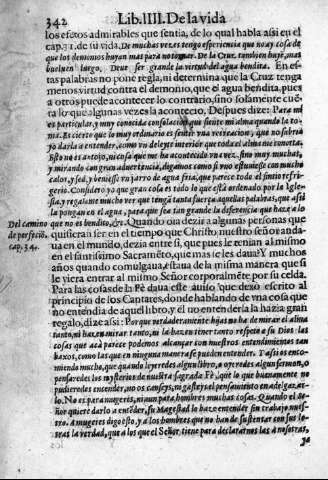 342 Lib. IIII. De la vida
los efetos admirables que sentia, de lo qual habla assi en el
cap. 31. de su vida. De muchas vezes tengo esperiencia que no ay cosa de
que los demonios huyan mas para no tornar. De la Cruz tambien huyẽ, mas
bueluen luego. Deue ser grande la virtud del agua bendita. En es-
tas palabras no pone regla, ni determina que la Cruz tenga
menos virtud contra el demonio, que el agua bendita, pues
a otros puede acontecer lo contrario, sino solamente cuẽ-
ta lo que algunas vezes la acontecio. Despues dize: Para mi
es particular, y muy conocida consolacion que siente mi alma quando la to-
ma. Es cierto que lo muy ordinario es sentir vna recreacion, que no sabria
yo darla a entender, como vn deleyte interior que toda el alma me conorta.
Esto no es antojo, ni cosa que me ha acontecido vna vez, sino muy muchas,
y mirando con gran aduertencia, digamos como si vno estuuiesse con mucha
calor, y sed, y beuiesse vn jarro de agua fria, que parece todo el sintio refri-
gerio. Considero yo que gran cosa es todo lo que està ordenado por la Igle-
sia, y regalame mucho ver que tengã tanta fuerça aquellas palabras, que assi
la pongan en el agua, para que sea tan grande la diferencia que haze a lo
Del camino que no es bendito. Quando oia dezir a algunas personas que
de perfeciõ, quisieran ser en el tiempo que Christo, nuestro señor anda-
cap. 34. ua en el mundo, dezia entre si, que pues le tenian al mismo
en el santissimo Sacramẽto, que mas se les daua? Y muchos
años quando comulgaua, estaua de la misma manera que si
le viera entrar al mismo Señor corporalmente por su celda.
Para las cosas de la Fê daua este auiso que dexò escrito al
principio de los Cantares, donde hablando de vna cosa que
no entendia de aquel libro, y el no entenderla la hazia gran
regalo, dize assi: Porque verdaderamente hijas no ha de mirar el alma
tanto, ni haz en mirar tanto, ni la hazen tener tanto respeto a su Dios las
cosas que acà parece podemos alcançar con nuestros entendimientos tan
baxos, como las que en ninguna manera se pueden entender. Y assi os enco-
miendo mucho, que quando leyeredes algun libro, o oyeredes algun sermon, o
pensaredes los mysterios de nuestra sagrada Fè, que lo que buenamente no
pudieredes entender, no os canseys, ni gasteys el pensamiento en adelgazar-
lo. No es para mugeres, ni aun para hombres muchas cosas. Quando el se-
ñor quiere darlo a entẽder, su Magestad lo haze entender sin trabajo nues-
tro. A mugeres digo esto, y a los hombres que no han de sustentar con sus le-
tras la verdad, que a los que el Señor tiene para declararnos las a nosotras,